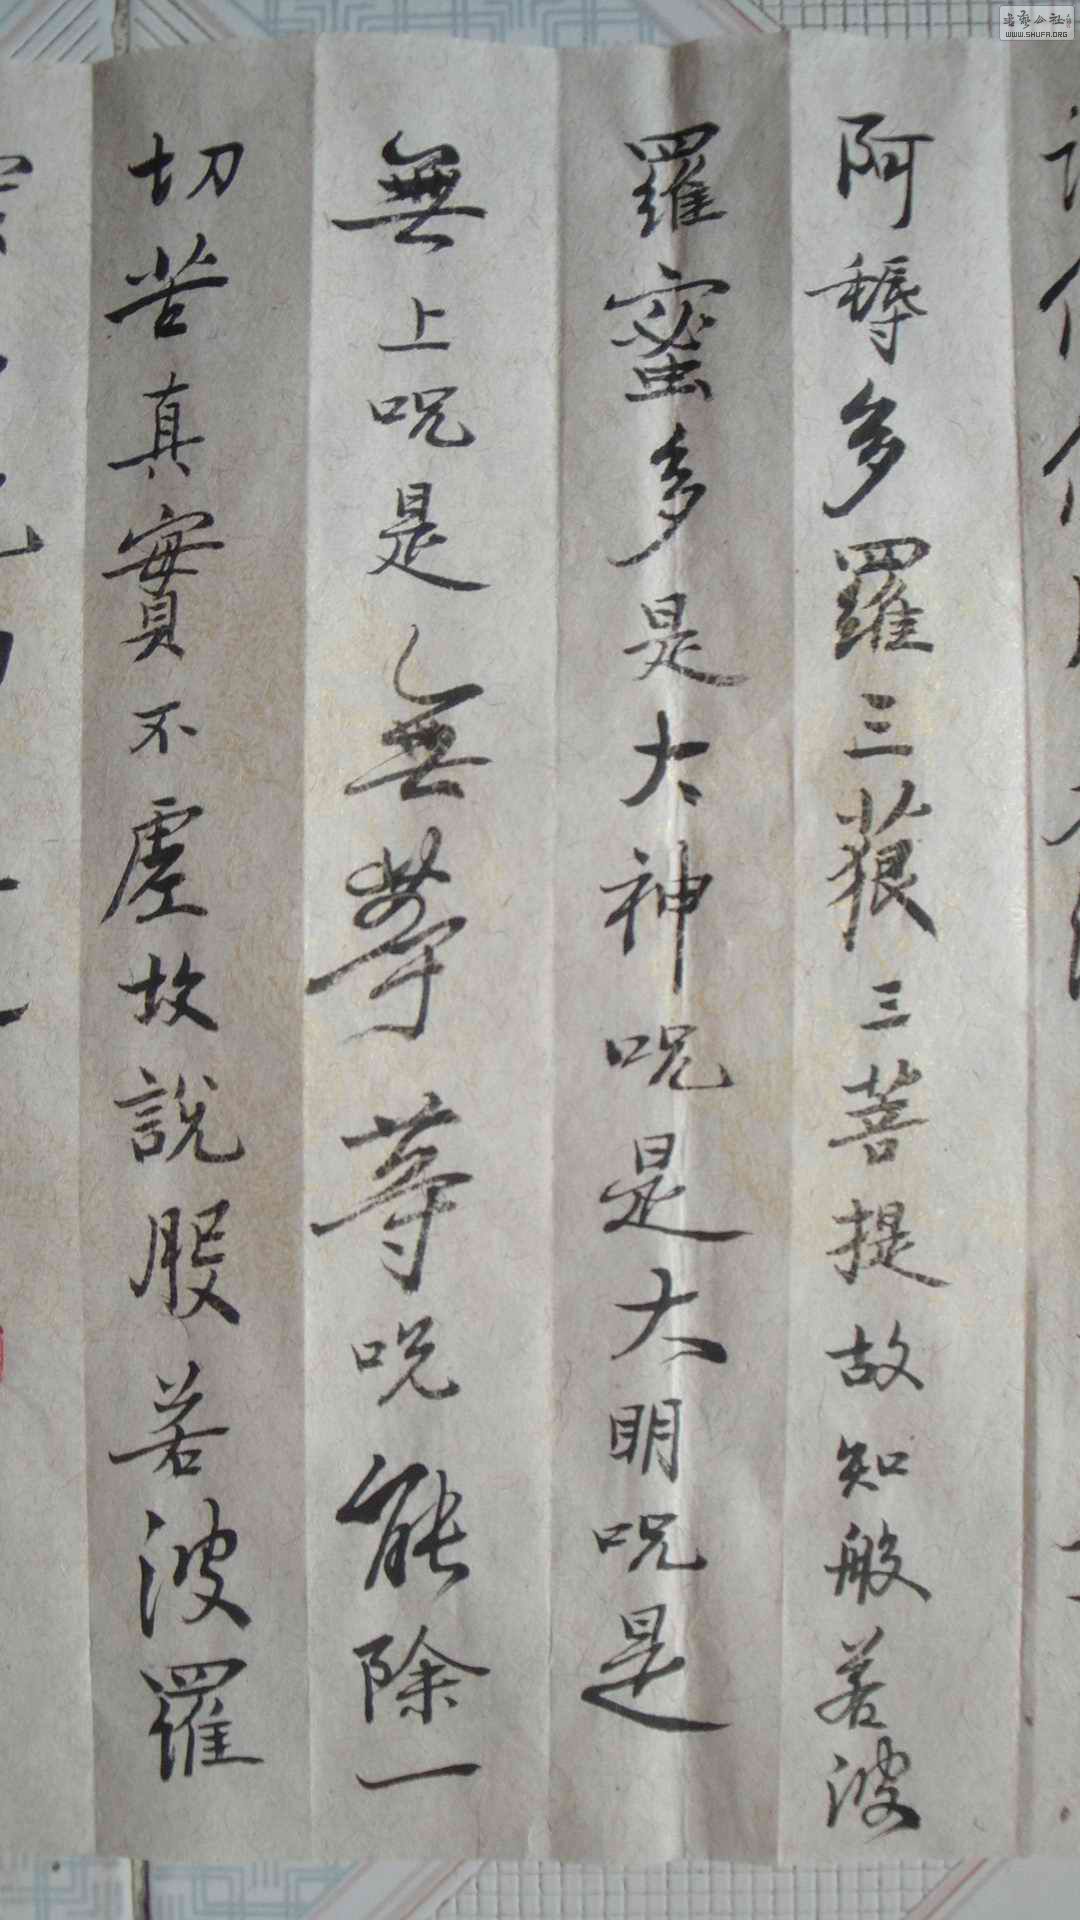 阿耨多羅三藐三菩提故知般若波
羅蜜多是大神咒是大明咒是
無上咒是無等等咒能除一
切苦真實不虛故說般若波羅
WWW.SHUFA.ORG